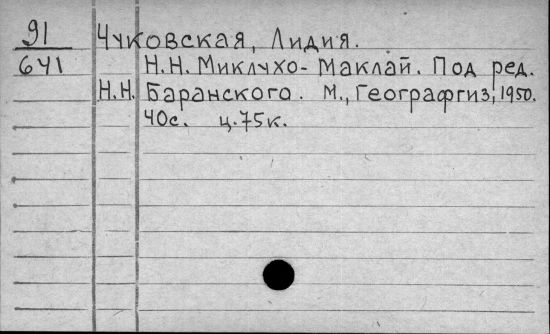 91 Чуковская, Лидия.
641 Н.Н. Миклухо-Маклай. Под ред.
Н.Н. Баранского. М., Географгиз, 1950.
40с. ц.75к.